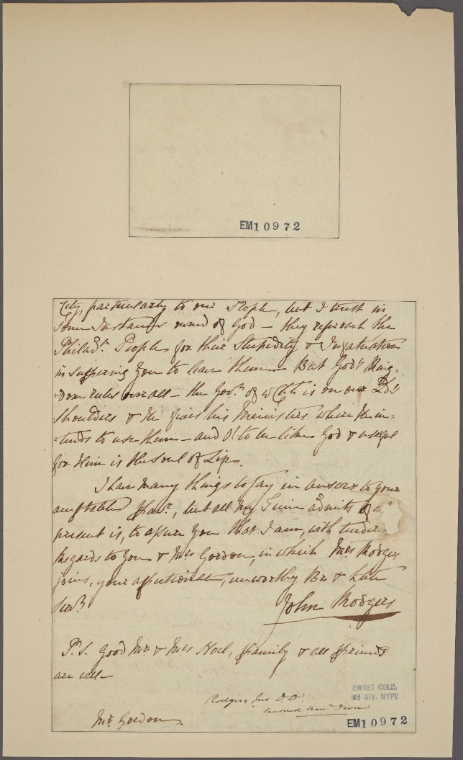 EM10972
City, particularly to our People, but I trust in
some Instances owned of God — they reproach the
Philad.ª People for their Stupidity & Ingratitude
in suffering You to leave them — But God's King-
-dom rules over all — the Gov.t of is on our Ld's
shoulders & He fixes his Ministers where He in-
-tends to use them — and O! to be like God & useful
for Him is the Soul of Life.
I have many things to say in answer to your
but all my Time admits of at
present is, to assure You that I am, with tender
regards to You & Mrs Gordon, in which Mrs Rodgers
joins, your affectionate, unworthy Br. & hum.
Serv.t
John Rodgers
P.S. Good Mr & Mrs Noel, Family & all Friends
are well —
Rodgers Jno D.D.
EMMET COLL.
MS DIV. NYPL
Mr. Gordon
EM10972